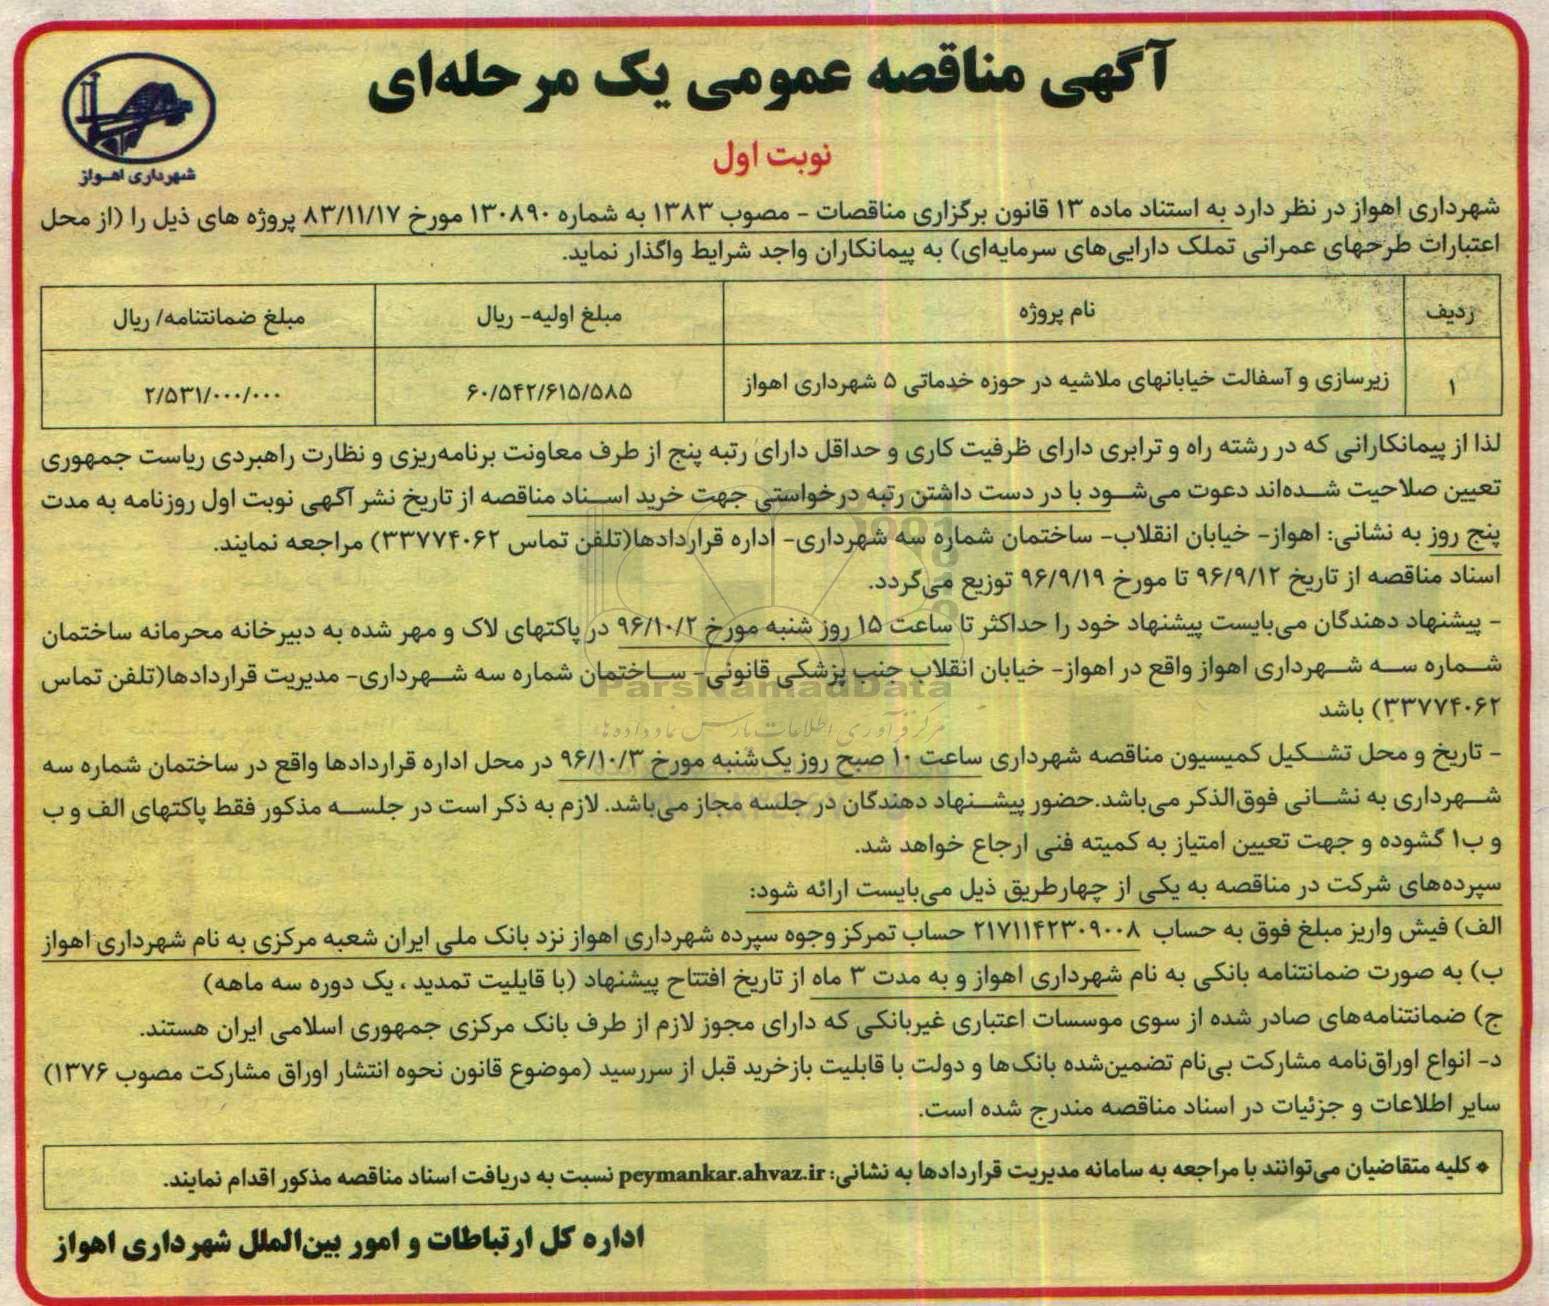 آگهی مناقصه عمومی یک مرحله‌ای
شهرداری اهواز
نوبت اول
شهرداری اهواز در نظر دارد به استناد ماده ۱۳ قانون برگزاری مناقصات - مصوب ۱۳۸۳ به شماره ۱۳۰۸۹۰ مورخ ۸۳/۱۱/۱۷ پروژه های ذیل را (از محل
اعتبارات طرحهای عمرانی تملک دارایی‌های سرمایه‌ای) به پیمانکاران واجد شرایط واگذار نماید.
ردیف نام پروژه مبلغ اولیه- ریال مبلغ ضمانتنامه/ ریال
۱ زیرسازی و آسفالت خیابانهای ملاشیه در حوزه خدماتی ۵ شهرداری اهواز ۶۰/۵۴۲/۶۱۵/۵۸۵ ۲/۵۳۱/۰۰۰/۰۰۰
لذا از پیمانکارانی که در رشته راه و ترابری دارای ظرفیت کاری و حداقل دارای رتبه پنج از طرف معاونت برنامه‌ریزی و نظارت راهبردی ریاست جمهوری
تعیین صلاحیت شده‌اند دعوت می‌شود با در دست داشتن رتبه درخواستی جهت خرید اسناد مناقصه از تاریخ نشر آگهی نوبت اول روزنامه به مدت
پنج روز به نشانی: اهواز- خیابان انقلاب- ساختمان شماره سه شهرداری- اداره قراردادها(تلفن تماس ۳۳۷۷۴۰۶۲) مراجعه نمایند.
اسناد مناقصه از تاریخ ۹۶/۹/۱۲ تا مورخ ۹۶/۹/۱۹ توزیع می‌گردد.
- پیشنهاد دهندگان می‌بایست پیشنهاد خود را حداکثر تا ساعت ۱۵ روز شنبه مورخ ۹۶/۱۰/۲ در پاکتهای لاک و مهر شده به دبیرخانه محرمانه ساختمان
شماره سه شهرداری اهواز واقع در اهواز- خیابان انقلاب جنب پزشکی قانونی- ساختمان شماره سه شهرداری- مدیریت قراردادها(تلفن تماس
۳۳۷۷۴۰۶۲) باشد
ParsNamadData
مرکز فرآوری اطلاعات پارس نماد داده ها
- تاریخ و محل تشکیل کمیسیون مناقصه شهرداری ساعت ۱۰ صبح روز یک‌شنبه مورخ ۹۶/۱۰/۳ در محل اداره قراردادها واقع در ساختمان شماره سه
شهرداری به نشانی فوق‌الذکر می‌باشد.حضور پیشنهاد دهندگان در جلسه مجاز می‌باشد. لازم به ذکر است در جلسه مذکور فقط پاکتهای الف و ب
و ب۱ گشوده و جهت تعیین امتیاز به کمیته فنی ارجاع خواهد شد.
سپرده‌های شرکت در مناقصه به یکی از چهارطریق ذیل می‌بایست ارائه شود:
الف) فیش واریز مبلغ فوق به حساب ۲۱۷۱۱۴۲۳۰۹۰۰۸ حساب تمرکز وجوه سپرده شهرداری اهواز نزد بانک ملی ایران شعبه مرکزی به نام شهرداری اهواز
ب) به صورت ضمانتنامه بانکی به نام شهرداری اهواز و به مدت ۳ ماه از تاریخ افتتاح پیشنهاد (با قابلیت تمدید ، یک دوره سه ماهه)
ج) ضمانتنامه‌های صادر شده از سوی موسسات اعتباری غیربانکی که دارای مجوز لازم از طرف بانک مرکزی جمهوری اسلامی ایران هستند.
د- انواع اوراق‌نامه مشارکت بی‌نام تضمین‌شده بانک‌ها و دولت با قابلیت بازخرید قبل از سررسید (موضوع قانون نحوه انتشار اوراق مشارکت مصوب ۱۳۷۶)
سایر اطلاعات و جزئیات در اسناد مناقصه مندرج شده است.
* کلیه متقاضیان می‌توانند با مراجعه به سامانه مدیریت قراردادها به نشانی: peymankar.ahvaz.ir نسبت به دریافت اسناد مناقصه مذکور اقدام نمایند.
اداره کل ارتباطات و امور بین‌الملل شهرداری اهواز